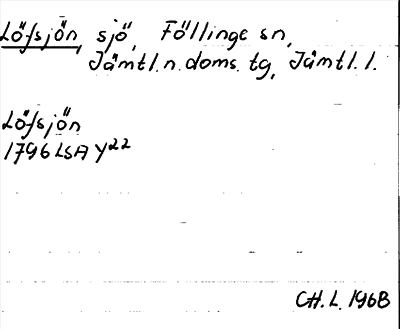 Löfsjön, sjö, Föllinge sn,
Jämtl.n.doms.tg, Jämtl.l.
Löfsjön
1796 LSA Y22
CH.L. 1968